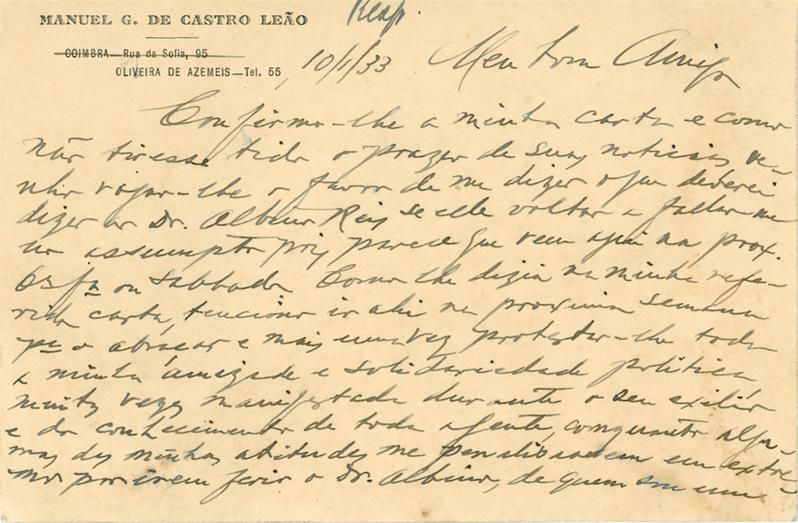 Resp.
MANUEL G. DE CASTRO LEÃO
COIMBRA—Rua da Sofia, 95
OLIVEIRA DE AZEMEIS—Tel. 55
, 10/1/33 Meu bom Amigo
Confirmo-lhe a minha carta e como
não tivesse tido o prazer de suas noticias ve-
nho rogar-lhe o favor de me dizer o que deverei
dizer ao Dr. Albino Reis se elle voltar a fallar-me
no assumpto pois parece que vem aqui na prox.
6ª fª ou sabbado. Como lhe dizia na minha refe-
rida carta, tenciono ir ahi na proxima semana
pª o abraçar e mais uma vez protestar-lhe toda
a minha amizade e solidariedade politica
muitas vezes manifestada durante o seu exilio
e do conhecimento de toda a gente, conquanto algu-
mas das minhas atitudes me penalisassem em extre-
mo por irem ferir o Dr. Albino, de quem sou um